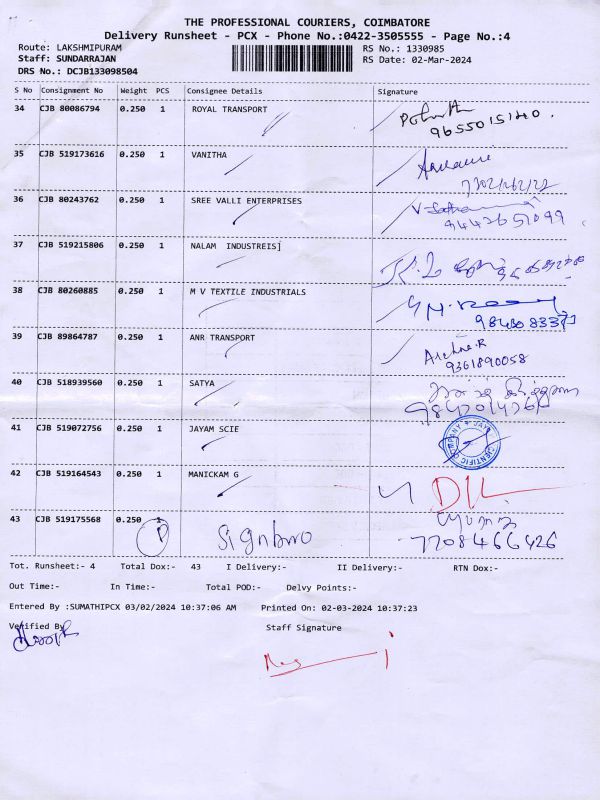 THE PROFESSIONAL COURIERS, COIMBATORE
Delivery Runsheet - PCX - Phone No.:0422-3505555 - Page No.:4
Route: LAKSHMIPURAM RS No.: 1330985
Staff: SUNDARRAJAN RS Date: 02-Mar-2024
DRS No.: DCJB133098504
S No Consignment No Weight PCS Consignee Details Signature
34 CJB 80086794 0.250 1 ROYAL TRANSPORT
9655015140.
35 CJB 519173616 0.250 1 VANITHA
36 CJB 80243762 0.250 1 SREE VALLI ENTERPRISES
9442651099
37 CJB 519215806 0.250 1 NALAM INDUSTREIS]
38 CJB 80260885 0.250 1 M V TEXTILE INDUSTRIALS
39 CJB 89864787 0.250 1 ANR TRANSPORT
Archna.R
9361890058
40 CJB 518939560 0.250 1 SATYA
41 CJB 519072756 0.250 1 JAYAM SCIE
42 CJB 519164543 0.250 1 MANICKAM G
43 CJB 519175568 0.250 1 P Signbro
7708466426
Tot. Runsheet:- 4 Total Dox:- 43 I Delivery:- II Delivery:- RTN Dox:-
Out Time:- In Time:- Total POD:- Delvy Points:-
Entered By :SUMATHIPCX 03/02/2024 10:37:06 AM Printed On: 02-03-2024 10:37:23
Verified By Staff Signature